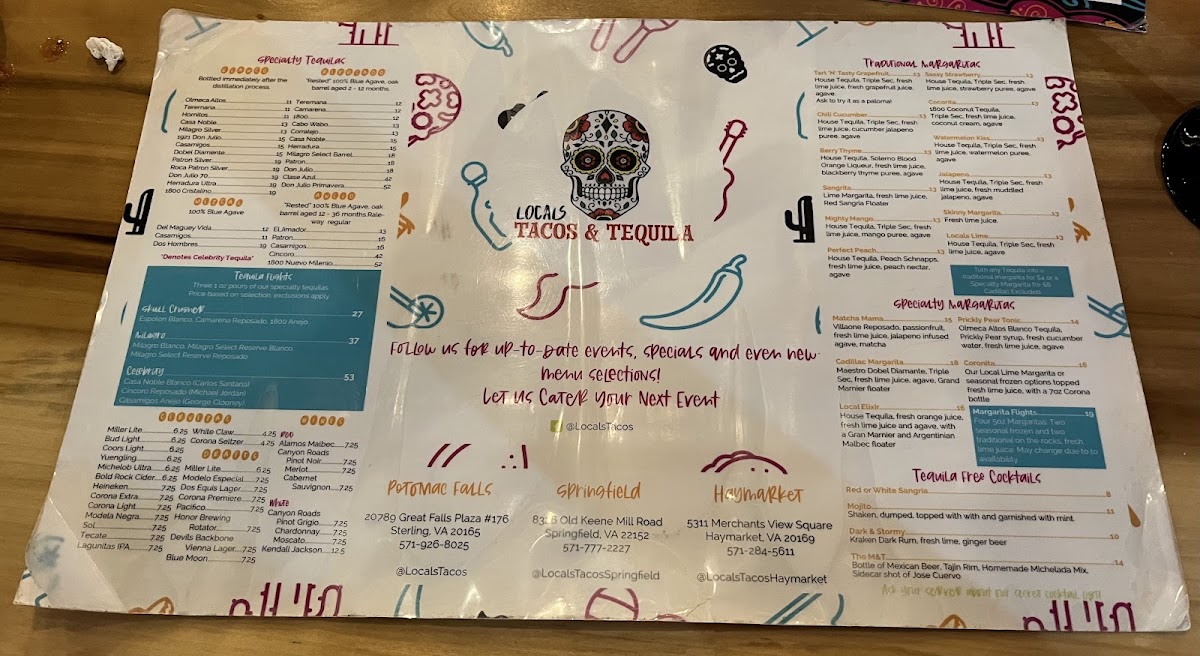 Specialty Tequilas
BLANCO
Bottled immediately after the
distillation process.
Olmeca Altos 11
Teremana 11
Hornitos 11
Casa Noble 13
Milagro Silver 13
1921 Don Julio 15
Casamigos 15
Dobel Diamante 15
Patron Silver 19
Roca Patron Silver 19
Don Julio 70 19
Herradura Ultra 19
1800 Cristalino 19
MEZCAL
100% Blue Agave
Del Maguey Vida 12
Casamigos 11
Dos Hombres 19
*Denotes Celebrity Tequila*
REPOSADO
"Rested" 100% Blue Agave, oak
barrel aged 2 - 12 months.
Teremana 12
Camarena 12
1800 12
Cabo Wabo 13
Corralejo 13
Casa Noble 15
Herradura 15
Milagro Select Barrel 18
Patron 18
Don Julio 18
Clase Azul 42
Don Julio Primavera 52
AÑEJO
"Rested" 100% Blue Agave, oak
barrel aged 12 - 36 months. Rale-
way regular
ElJimador 13
Patron 16
Casamigos 16
Cincoro 42
1800 Nuevo Milenio 52
Tequila Flights
Three 1 oz pours of our specialty tequilas
Price based on selection, exclusions apply
Skull Crusher 27
Espolon Blanco, Camarena Reposado, 1800 Anejo
Milagro 37
Milagro Blanco, Milagro Select Reserve Blanco,
Milagro Select Reserve Reposado
Celebrity 53
Casa Noble Blanco (Carlos Santana)
Cincoro Reposado (Michael Jordan)
Casamigos Anejo (George Clooney)
CERVEZAS
Miller Lite 6.25
Bud Light 6.25
Coors Light 6.25
Yuengling 6.25
Michelob Ultra 6.25
Bold Rock Cider 6.25
Heineken 7.25
Corona Extra 7.25
Corona Light 7.25
Modela Negra 7.25
Sol 7.25
Tecate 7.25
Lagunitas IPA 7.25
White Claw 6.25
Corona Seltzer 4.25
DRAFTS
Miller Lite 6.25
Modelo Especial 7.25
Dos Equis Lager 7.25
Corona Premiere 7.25
Pacifico 7.25
Honor Brewing
Rotator 7.25
Devils Backbone
Vienna Lager 7.25
Blue Moon 7.25
WINES
Red
Alamos Malbec 7.25
Canyon Roads
Pinot Noir 7.25
Merlot 7.25
Cabernet
Sauvignon 7.25
White
Canyon Roads
Pinot Grigio 7.25
Chardonnay 7.25
Moscato 7.25
Kendall Jackson 12.5
LOCALS
TACOS & TEQUILA
Follow us for up-to-date events, specials and even new
menu selections!
Let us Cater Your Next Event
@LocalsTacos
Potomac Falls
20789 Great Falls Plaza #176
Sterling, VA 20165
571-926-8025
@LocalsTacos
Springfield
Old Keene Mill Road
Springfield, VA 22152
571-777-2227
@LocalsTacosSpringfield
Haymarket
5311 Merchants View Square
Haymarket, VA 20169
571-284-5611
@LocalsTacosHaymarket
Traditional Margaritas
Tart 'N' Tasty Grapefruit 13
House Tequila, Triple Sec, fresh
lime juice, fresh grapefruit juice,
agave.
Ask to try it as a paloma!
Chili Cucumber 13
House Tequila, Triple Sec, fresh
lime juice, cucumber jalapeno
puree, agave.
Berry Thyme 13
House Tequila, Solerno Blood
Orange Liqueur, fresh lime juice,
blackberry thyme puree, agave.
Sangrita 13
Lime Margarita, fresh lime juice,
Red Sangria Floater
Mighty Mango 13
House Tequila, Triple Sec, fresh
lime juice, mango puree, agave
Perfect Peach 13
House Tequila, Peach Schnapps,
fresh lime juice, peach nectar,
agave
Sassy Strawberry 13
House Tequila, Triple Sec, fresh
lime juice, strawberry puree, agave
Cocorita 13
1800 Coconut Tequila,
Triple Sec, fresh lime juice,
coconut cream, agave
Watermelon Kiss 13
House Tequila, Triple Sec, fresh
lime juice, watermelon puree,
agave
Jalapeno 13
House Tequila, Triple Sec, fresh
lime juice, fresh muddled
jalapeno, agave
Skinny Margarita 13
Fresh lime juice,
Locals Lime 13
House Tequila, Triple Sec, fresh
lime juice, agave
Turn any Tequila into a
traditional margarita for $4 or a
Specialty Margarita for $6
Cadillac Excluded
Specialty Margaritas
Matcha Mama 15
Villaone Reposado, passionfruit,
fresh lime juice, jalapeno infused
agave, matcha
Cadillac Margarita 18
Maestro Dobel Diamante, Triple
Sec, fresh lime juice, agave, Grand
Marnier floater
Local Elixir 16
House Tequila, fresh orange juice,
fresh lime juice and agave, with
a Gran Marnier and Argentinian
Malbec floater
Prickly Pear Tonic 14
Olmeca Altos Blanco Tequila,
Prickly Pear syrup, fresh cucumber
water, fresh lime juice, agave
Coronita 16
Our Local Lime Margarita or
seasonal frozen options topped
fresh lime juice, with a 7oz Corona
bottle
Margarita Flights 19
Four 5oz Margaritas: Two
seasonal frozen and two
traditional on the rocks, fresh
lime juice. May change due to to
availability
Tequila Free Cocktails
Red or White Sangria 8
Mojito 11
Shaken, dumped, topped with with and garnished with mint.
Dark & Stormy 10
Kraken Dark Rum, fresh lime, ginger beer
The M&T 14
Bottle of Mexican Beer, Tajin Rim, Homemade Michelada Mix,
Sidecar shot of Jose Cuervo
Ask your server about our secret cocktail light